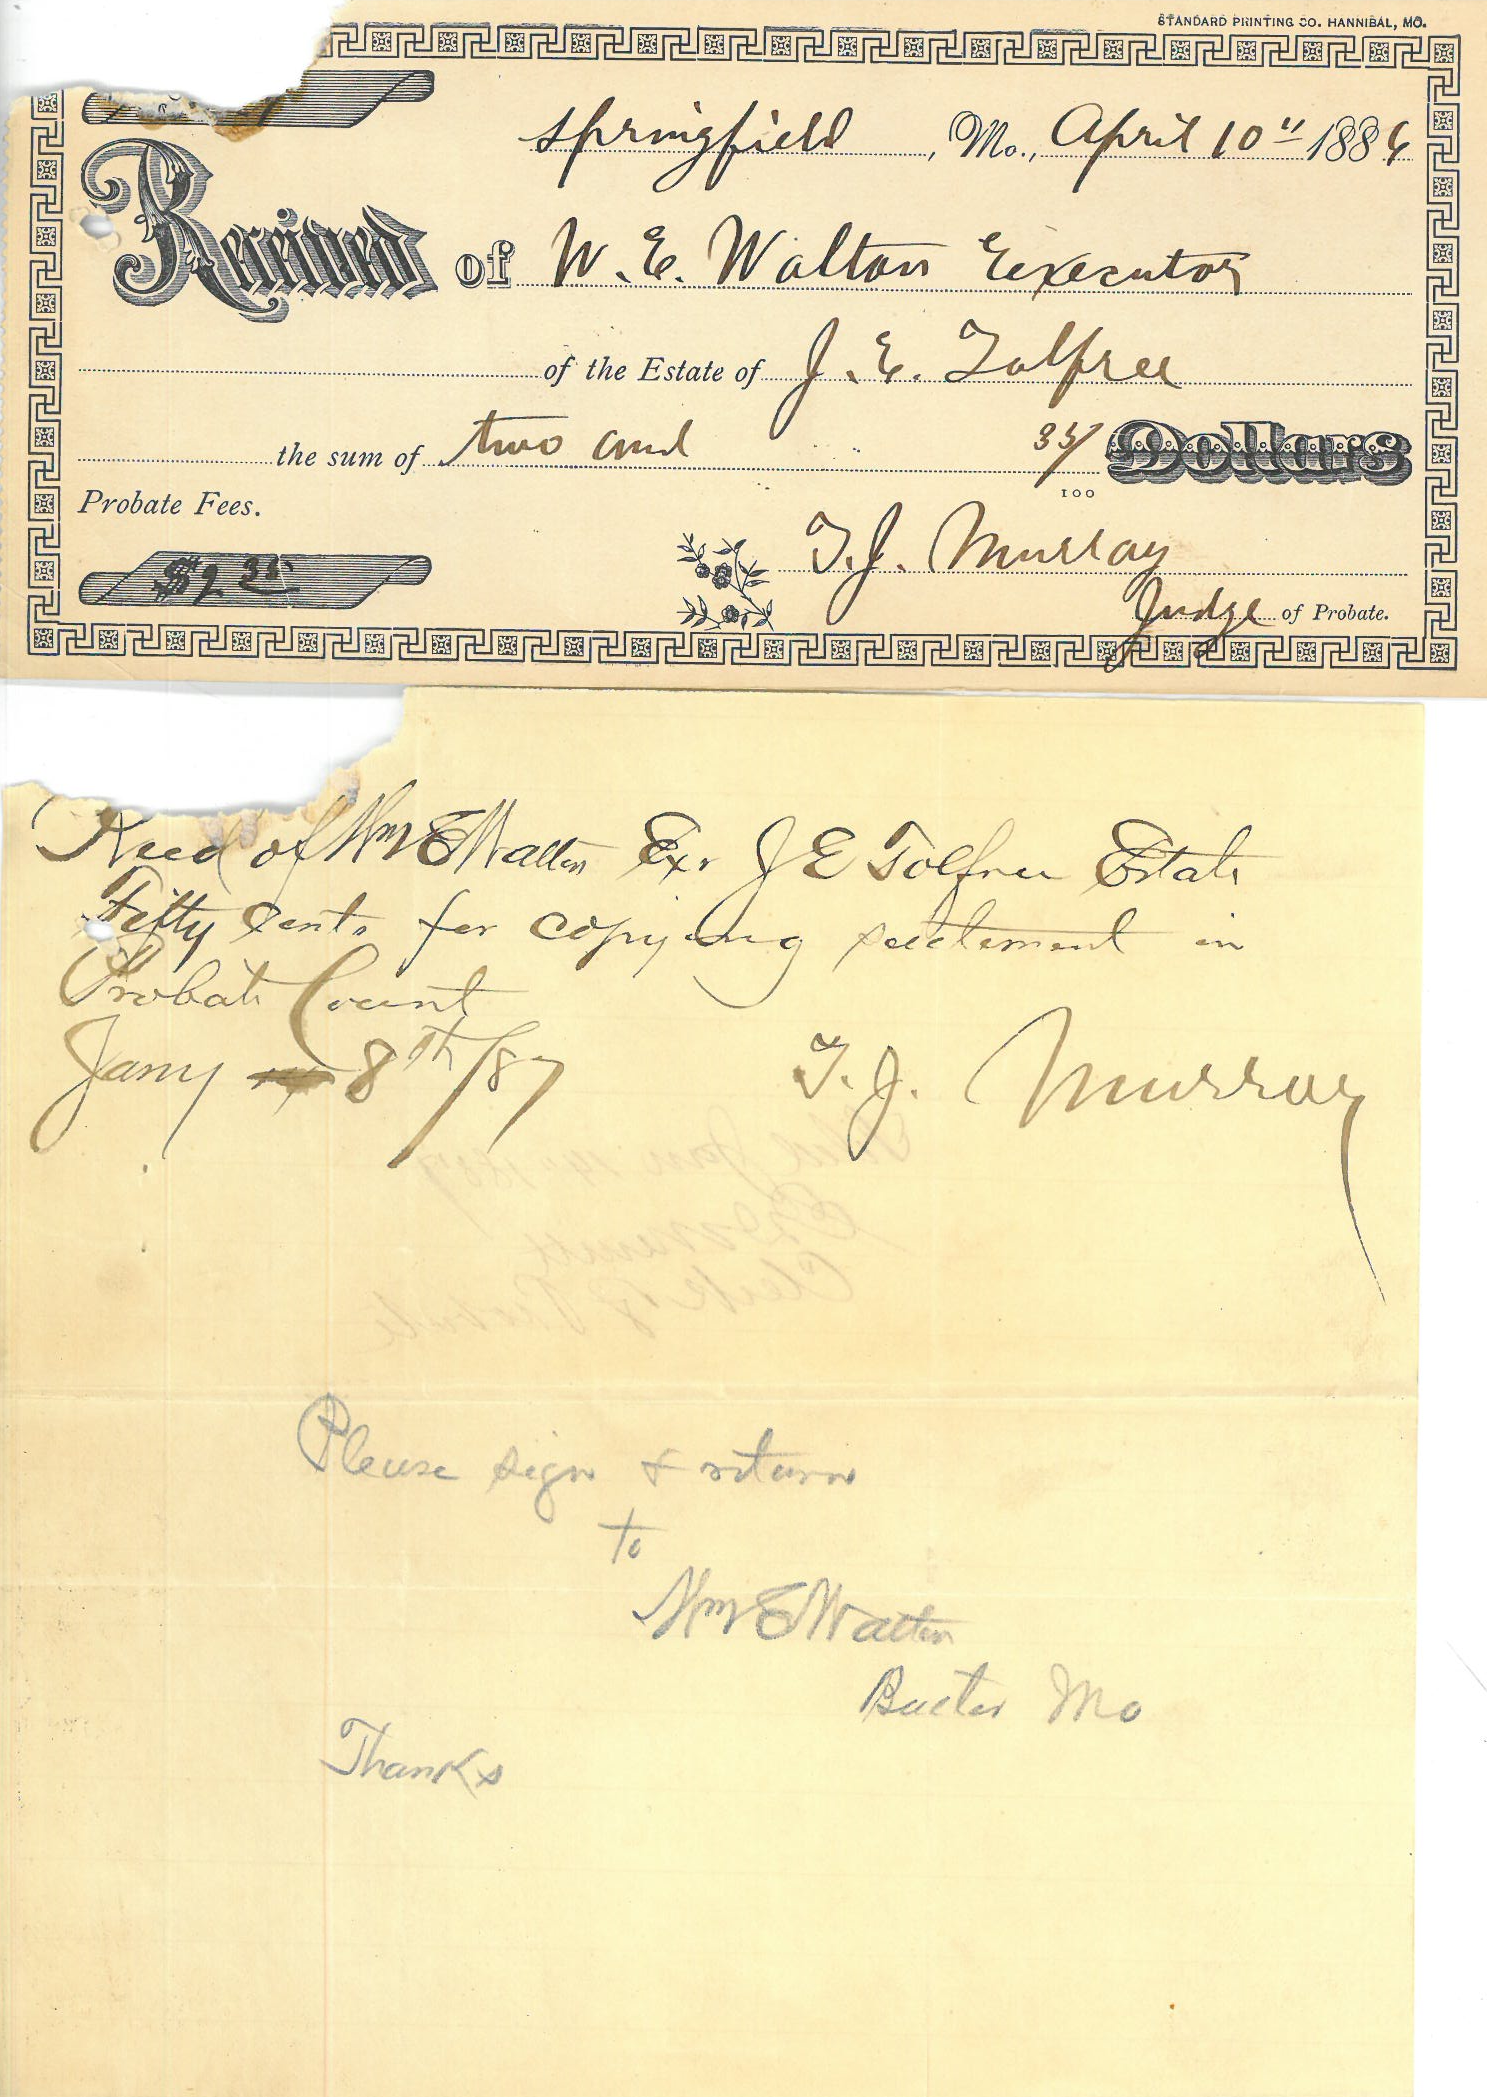 STANDARD PRINTING CO. HANNIBAL, MO.
Springfield, Mo., April 10" 1886
Received of W. E. Walton Executor
of the Estate of J. E. Tolfree
the sum of two and 35/100 Dollars
Probate Fees.
$2.35
T. J. Murray
Judge of Probate.
Recd of Wm E Walton Exr J E Tolfree Estate
Fifty cents for copying settlement in
Probate Court
Jany 8th/87 T. J. Murray
Filed Jan 14 1887
Clerk of Probate
Please sign & return
to
Wm E Walton
Butler Mo
Thanks